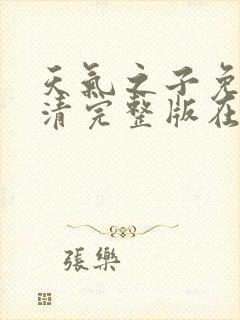 天氣之子免
清完整版在
張樂